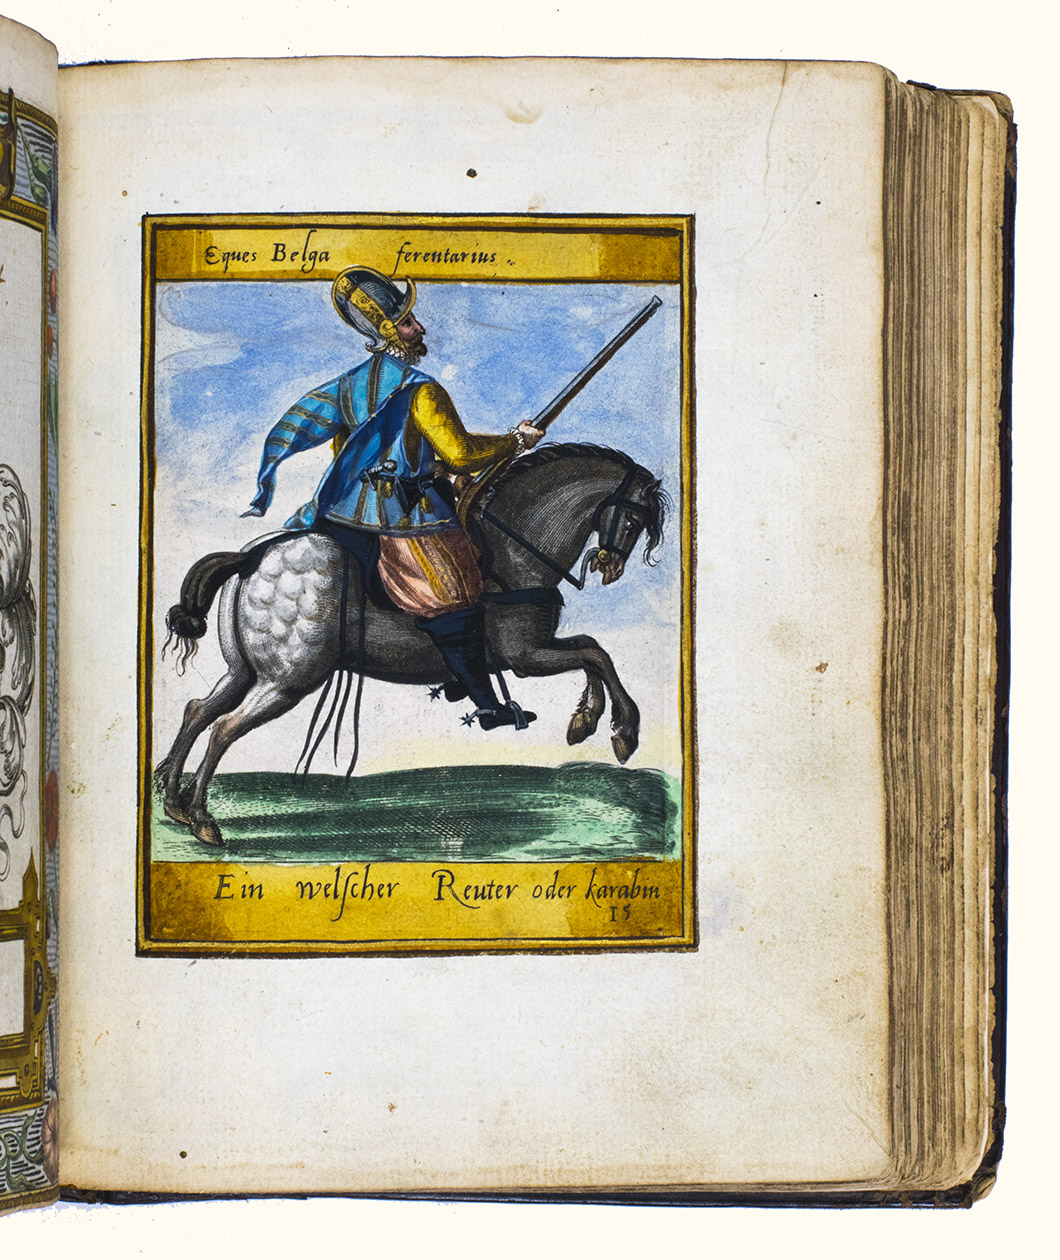 Eques Belga ferentarius.
Ein welſcher Reuter oder karabin
15